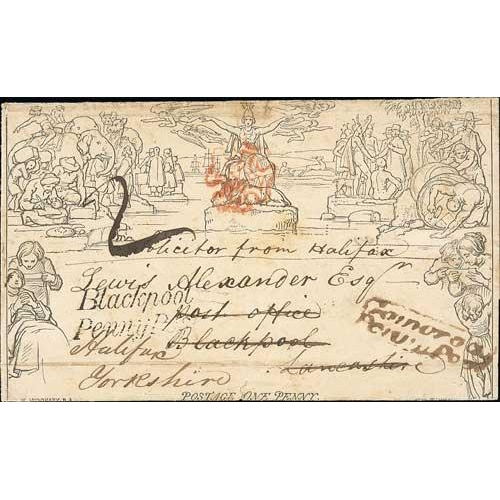 2
Solicitor from Halifax
Lewis Alexander Esqr
Blackpool
Penny P
post office
Halifax
Blackpool
Lancashire
Yorkshire
POSTAGE ONE PENNY.